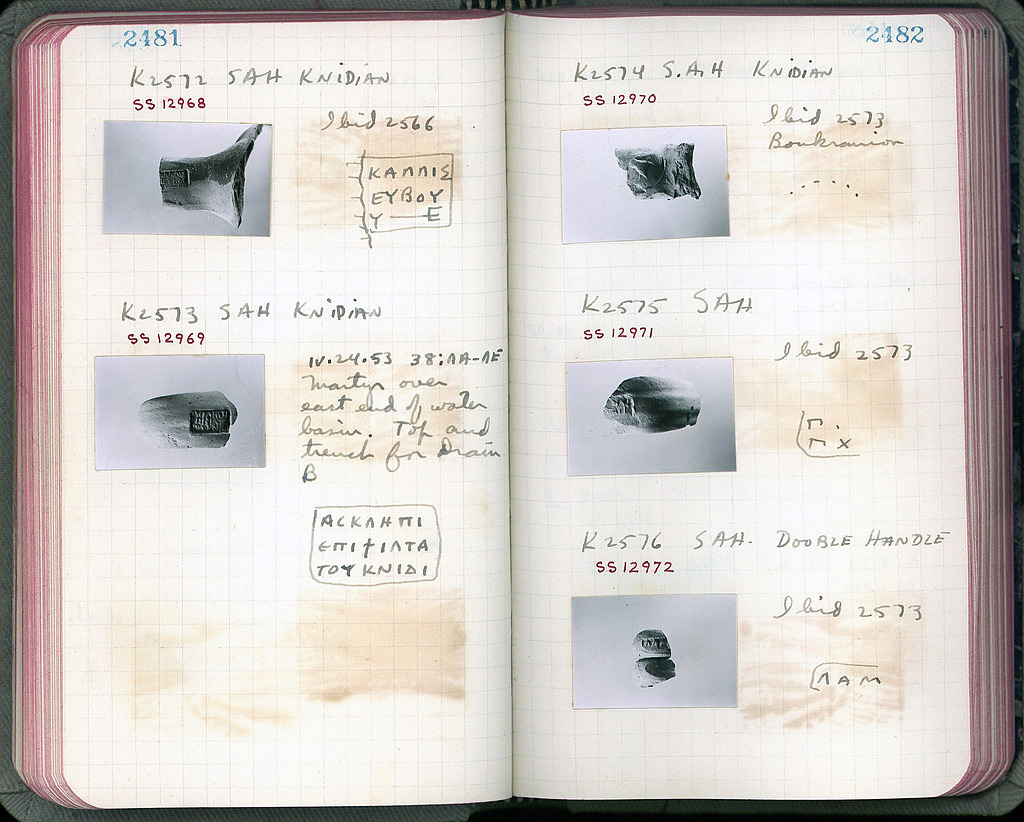 2481
K2572 SAH KNIDIAN
SS 12968
Ibid 2566
ΚΑΛΛΙΣ
ΕΥΒΟΥ
Υ—Ε
K2573 SAH KNIDIAN
SS 12969
IV.24.53 38:ΛΑ-ΛΕ
Martyr over
east end of water
basin. Top and
trench for Drain
B
ΑCΚΛΗΠΙ
ЄΠΙ ΙΛΤΑ
ΤΟΥ ΚΝΙΔΙ
2482
K2574 S.A.H KNIDIAN
SS 12970
Ibid 2573
Boukranion
K2575 SAH
SS 12971
Ibid 2573
Γ.
Γ X
K2576 SAH. DOUBLE HANDLE
SS 12972
Ibid 2573
ΛΑΜ